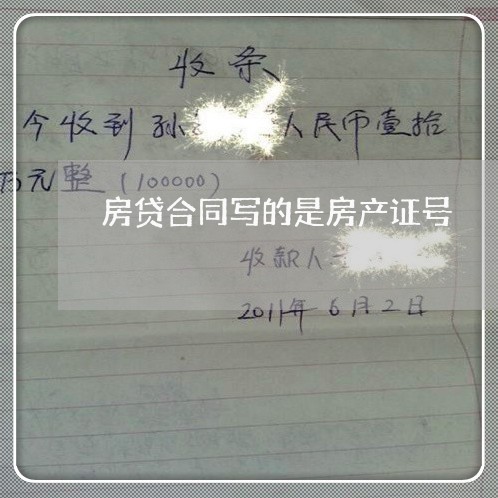 收条
今收到孙 人民币壹拾
万元整（100000）
房贷合同写的是房产证号
收款人
2011年6月2日